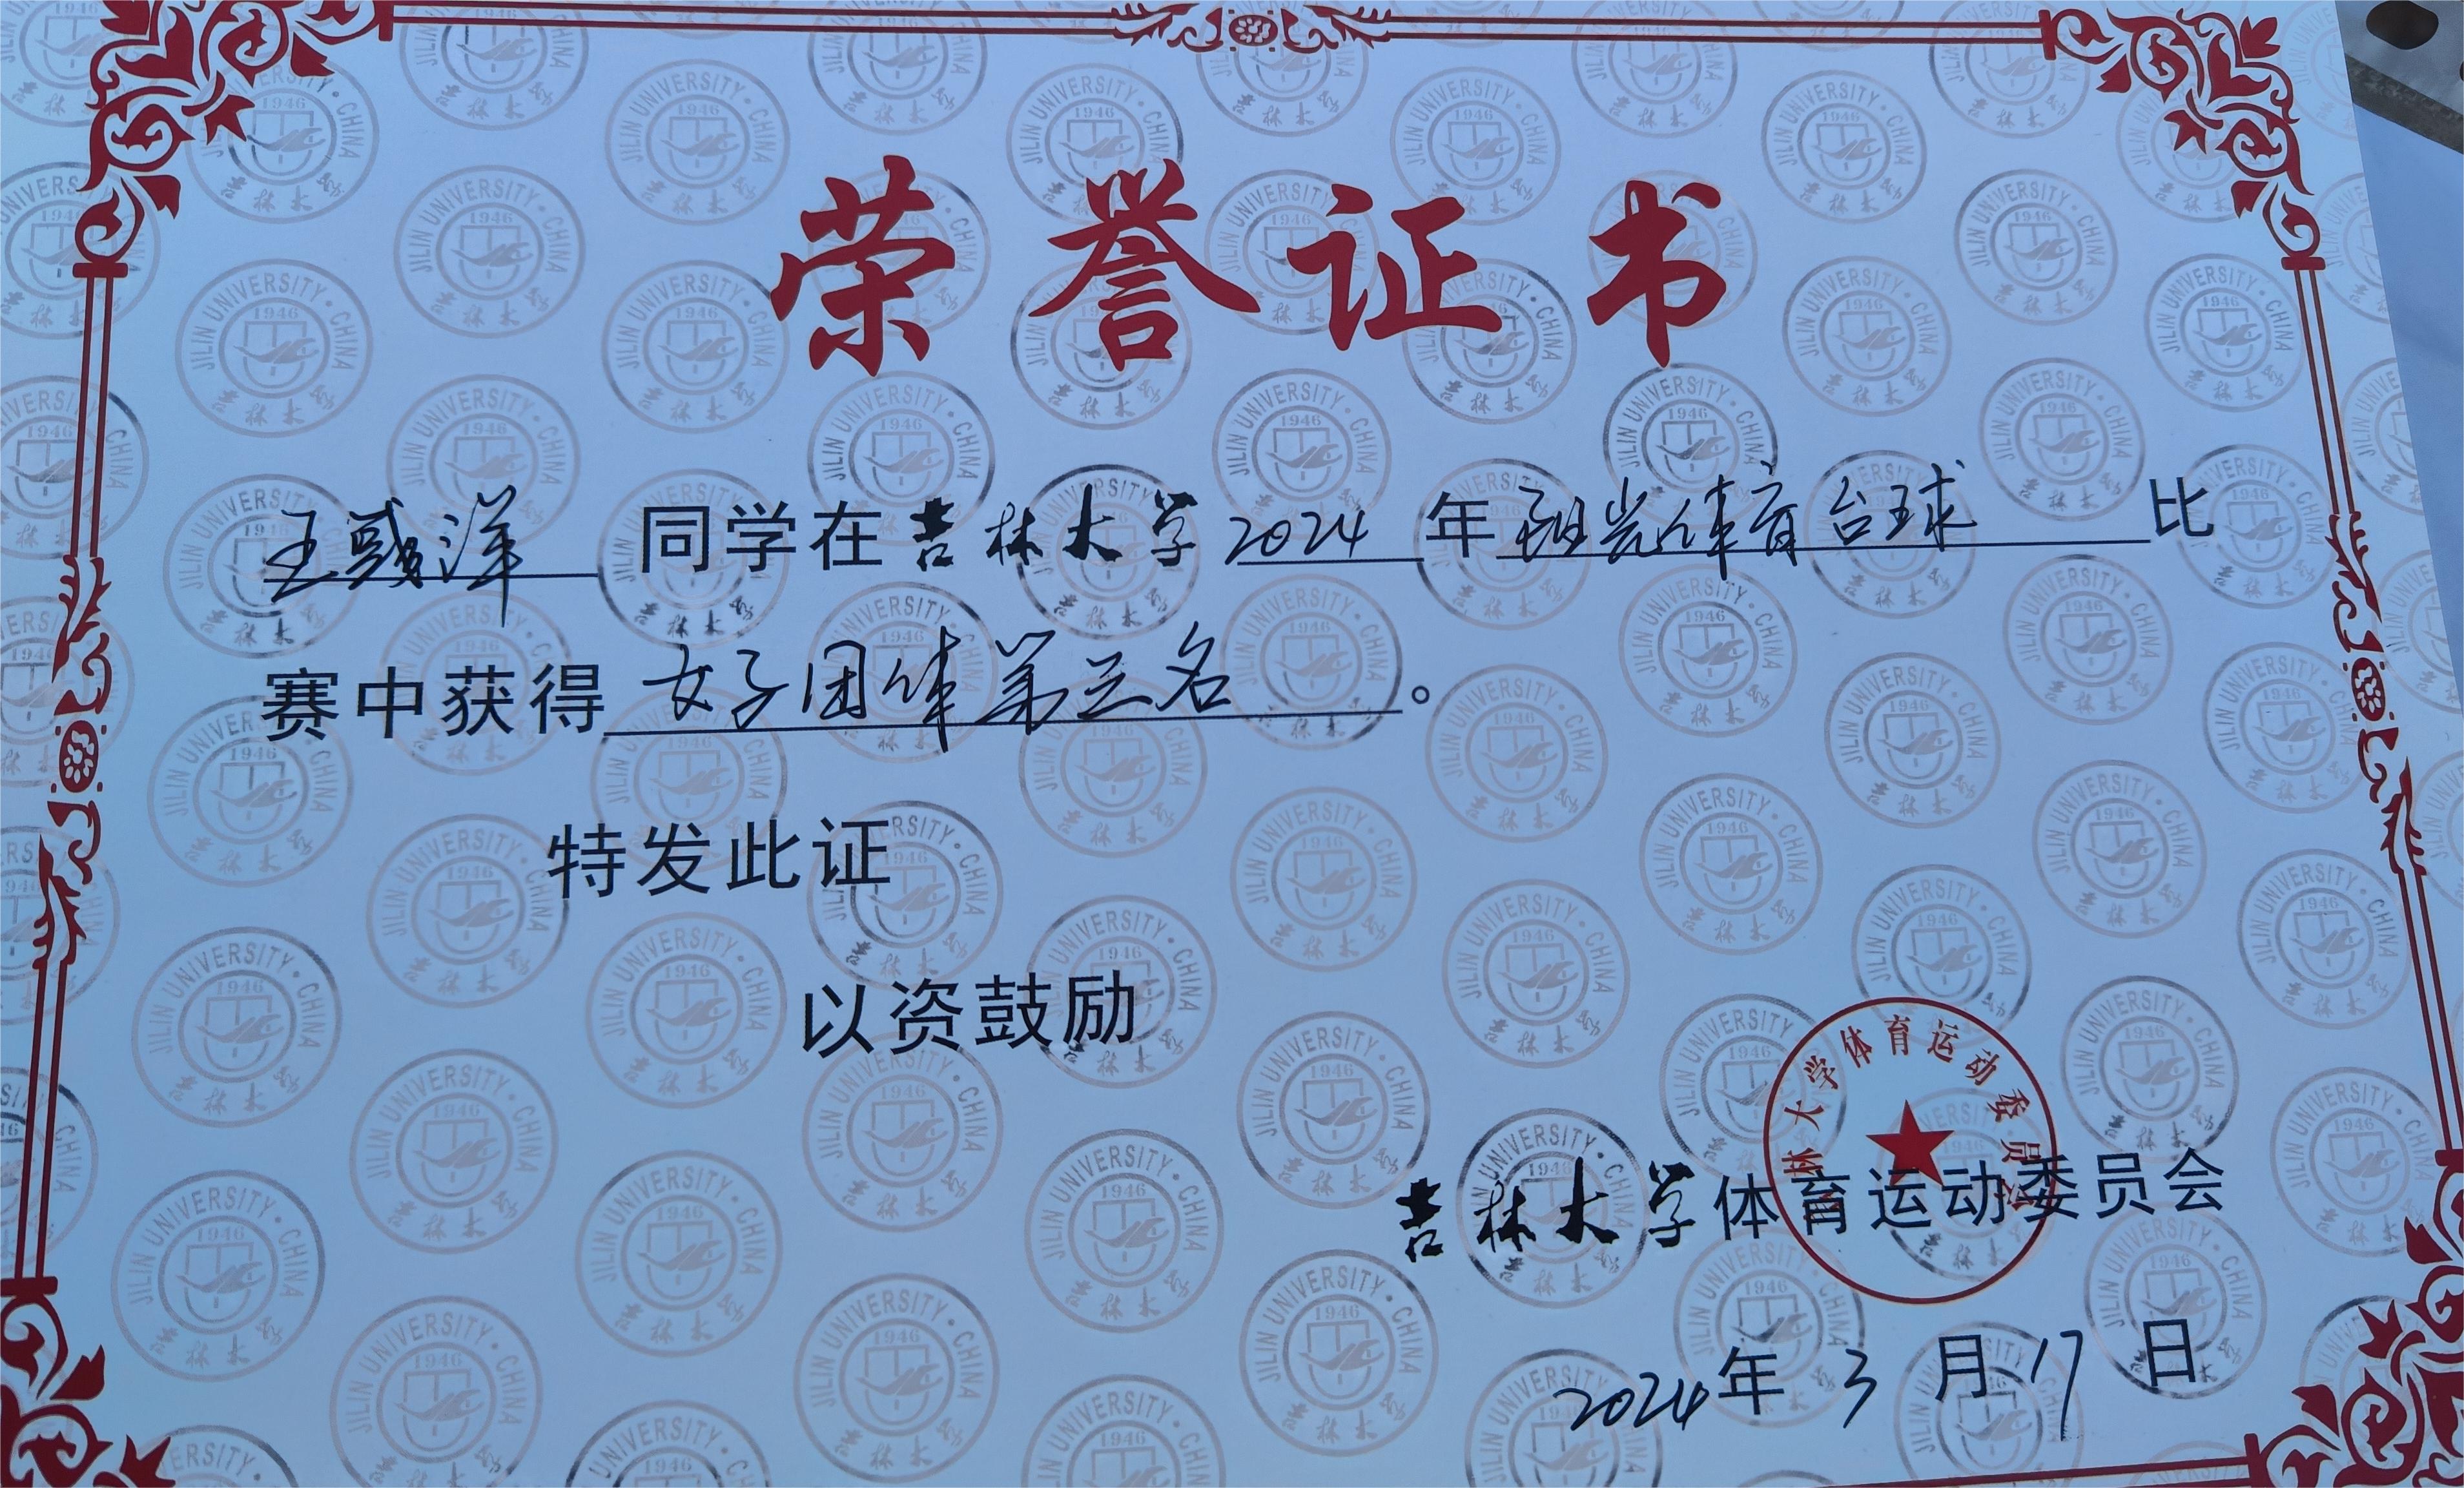 荣誉证书
王彧洋 同学在吉林大学 2024 年 阳光体育台球 比
赛中获得 女子团体第三名 。
特发此证
以资鼓励
林大学体育运动委员会
吉林大学体育运动委员会
2024年 3 月 17 日
JILIN UNIVERSITY · CHINA
1946
吉林大学